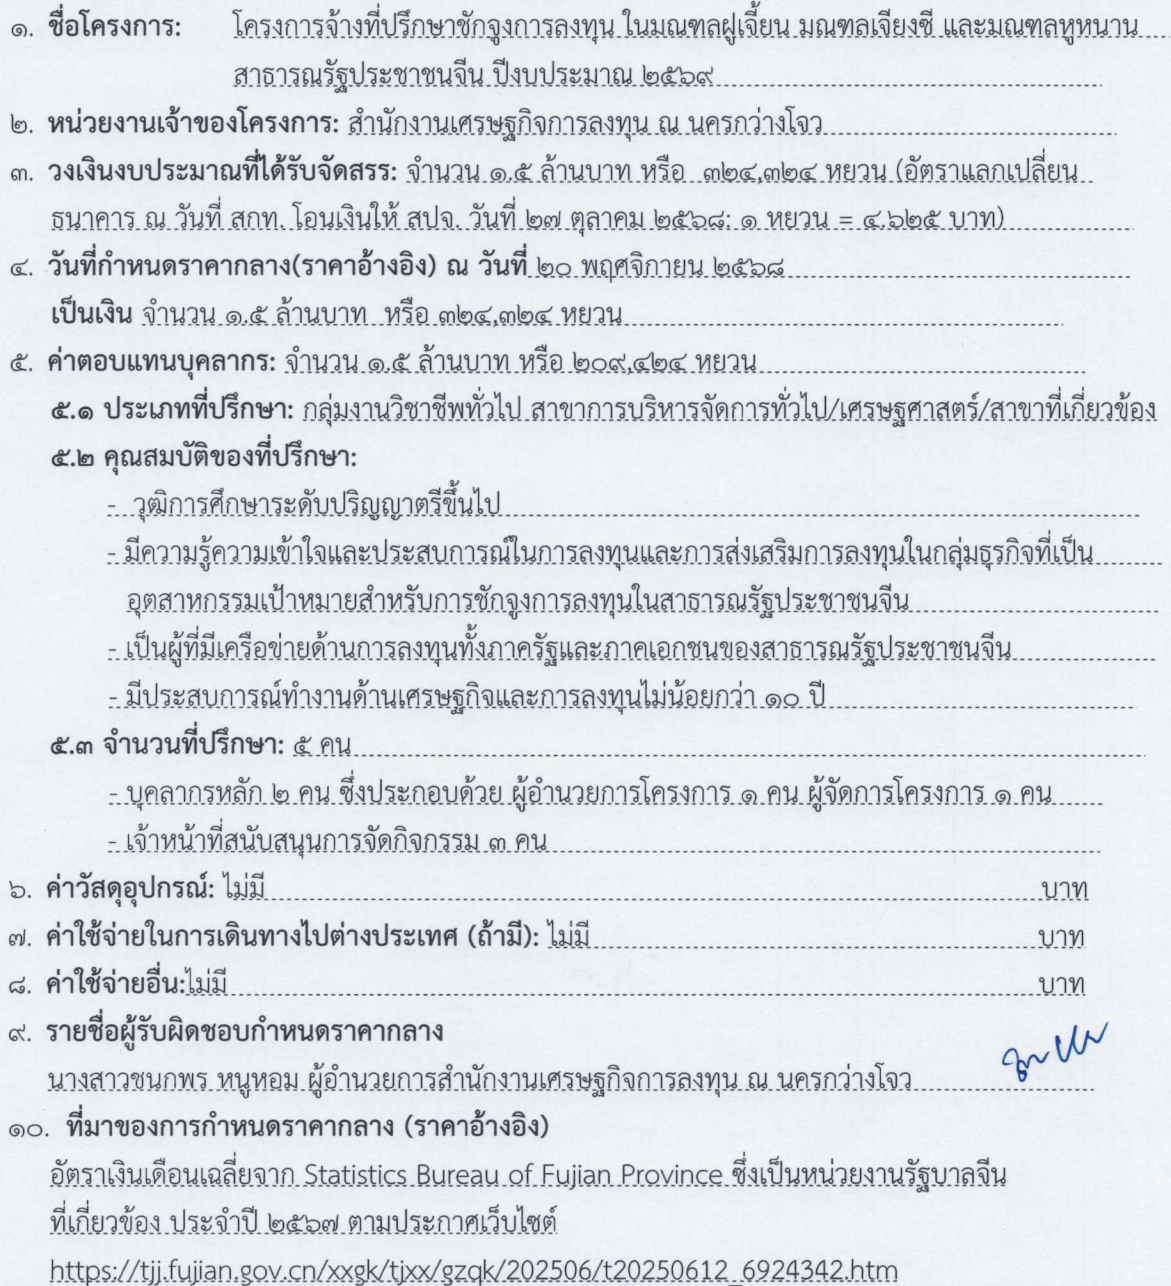 ๑. ชื่อโครงการ: โครงการจ้างที่ปรึกษาชักจูงการลงทุน ในมณฑลฝูเจี้ยน มณฑลเจียงซี และมณฑลหูหนาน
สาธารณรัฐประชาชนจีน ปีงบประมาณ ๒๕๖๙
๒. หน่วยงานเจ้าของโครงการ: สำนักงานเศรษฐกิจการลงทุน ณ นครกว่างโจว
๓. วงเงินงบประมาณที่ได้รับจัดสรร: จำนวน ๑.๕ ล้านบาท หรือ ๓๒๔,๓๒๔ หยวน (อัตราแลกเปลี่ยน
ธนาคาร ณ วันที่ สกท. โอนเงินให้ สปจ. วันที่ ๒๗ ตุลาคม ๒๕๖๘: ๑ หยวน = ๔.๖๒๕ บาท)
๔. วันที่กำหนดราคากลาง(ราคาอ้างอิง) ณ วันที่ ๒๐ พฤศจิกายน ๒๕๖๘
เป็นเงิน จำนวน ๑.๕ ล้านบาท หรือ ๓๒๔,๓๒๔ หยวน
๕. ค่าตอบแทนบุคลากร: จำนวน ๑.๕ ล้านบาท หรือ ๒๐๙,๔๒๔ หยวน
๕.๑ ประเภทที่ปรึกษา: กลุ่มงานวิชาชีพทั่วไป สาขาการบริหารจัดการทั่วไป/เศรษฐศาสตร์/สาขาที่เกี่ยวข้อง
๕.๒ คุณสมบัติของที่ปรึกษา:
- วุฒิการศึกษาระดับปริญญาตรีขึ้นไป
- มีความรู้ความเข้าใจและประสบการณ์ในการลงทุนและการส่งเสริมการลงทุนในกลุ่มธุรกิจที่เป็น
อุตสาหกรรมเป้าหมายสำหรับการชักจูงการลงทุนในสาธารณรัฐประชาชนจีน
- เป็นผู้ที่มีเครือข่ายด้านการลงทุนทั้งภาครัฐและภาคเอกชนของสาธารณรัฐประชาชนจีน
- มีประสบการณ์ทำงานด้านเศรษฐกิจและการลงทุนไม่น้อยกว่า ๑๐ ปี
๕.๓ จำนวนที่ปรึกษา: ๕ คน
- บุคลากรหลัก ๒ คน ซึ่งประกอบด้วย ผู้อำนวยการโครงการ ๑ คน ผู้จัดการโครงการ ๑ คน
- เจ้าหน้าที่สนับสนุนการจัดกิจกรรม ๓ คน
๖. ค่าวัสดุอุปกรณ์: ไม่มี บาท
๗. ค่าใช้จ่ายในการเดินทางไปต่างประเทศ (ถ้ามี): ไม่มี บาท
๘. ค่าใช้จ่ายอื่น:ไม่มี บาท
๙. รายชื่อผู้รับผิดชอบกำหนดราคากลาง
นางสาวชนกพร หนูหอม ผู้อำนวยการสำนักงานเศรษฐกิจการลงทุน ณ นครกว่างโจว
๑๐. ที่มาของการกำหนดราคากลาง (ราคาอ้างอิง)
อัตราเงินเดือนเฉลี่ยจาก Statistics Bureau of Fujian Province ซึ่งเป็นหน่วยงานรัฐบาลจีน
ที่เกี่ยวข้อง ประจำปี ๒๕๖๗ ตามประกาศเว็บไซต์
https://tjj.fujian.gov.cn/xxgk/tjxx/gzqk/202506/t20250612_6924342.htm